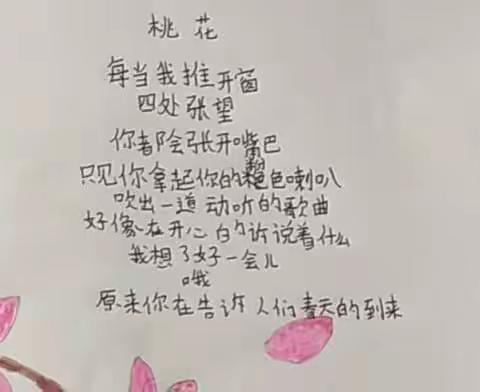 桃花
每当我推开窗
四处张望
你都会张开嘴巴
只见你拿起你的色喇叭
吹出一道动听的歌曲
好像在开心的诉说着什么
我想了好一会儿
哦
原来你在告诉人们春天的到来